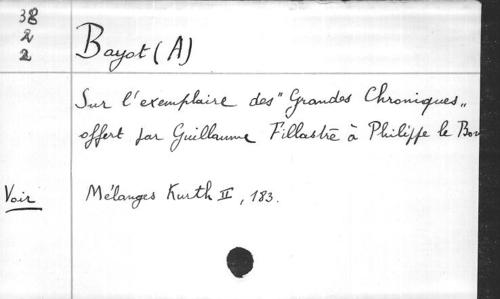 38
2
2
Bayot (A)
Sur l'exemplaire des "Grandes Chroniques„
offert par Guillaume Fillastre à Philippe le Bon
Voir Mélanges Kurth II, 183.